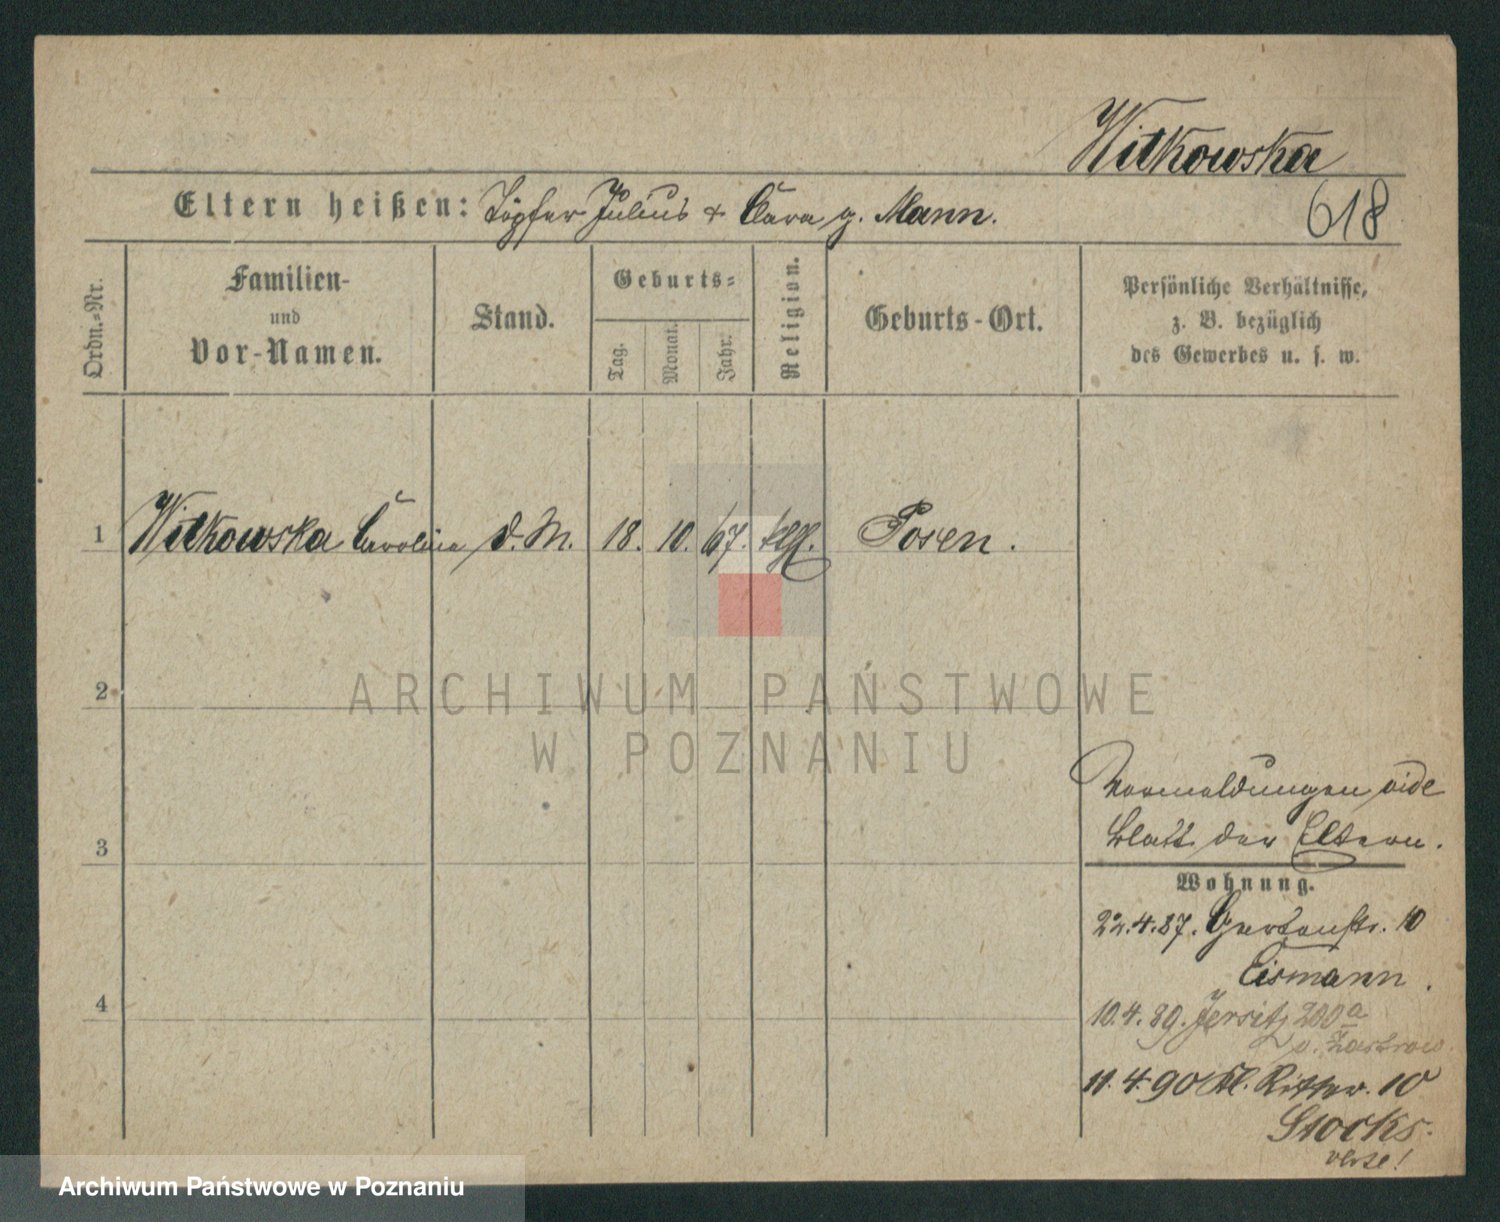 Witkowska
Eltern heißen: Töpfer Julius & Clara g. Mann.
618
Ordn.-Nr.
Familien-
und
Vor-Namen.
Stand.
Geburts-
Tag.
Monat.
Jahr.
Religion.
Geburts-Ort.
Persönliche Verhältnisse,
z. B. bezüglich
des Gewerbes u. s. w.
1 Witkowska Carolina d. M. 18. 10. 67. kth. Posen.
2
ARCHIWUM PAŃSTWOWE
W POZNANIU
Vormeldungen vide
Blatt der Eltern.
3
Wohnung.
22.4.87. Gartenstr. 10
Eismann.
4
10.4.89. Jersitz 200a
v. Zastrow
11.4.90 Kl. Ritter. 10
Stocks.
verte!
Archiwum Państwowe w Poznaniu